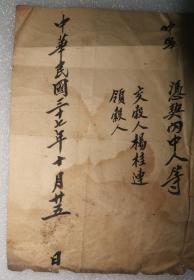 憑契內中人等
交穀人楊桂連
領穀人
中華民國三十七年十月廿五日